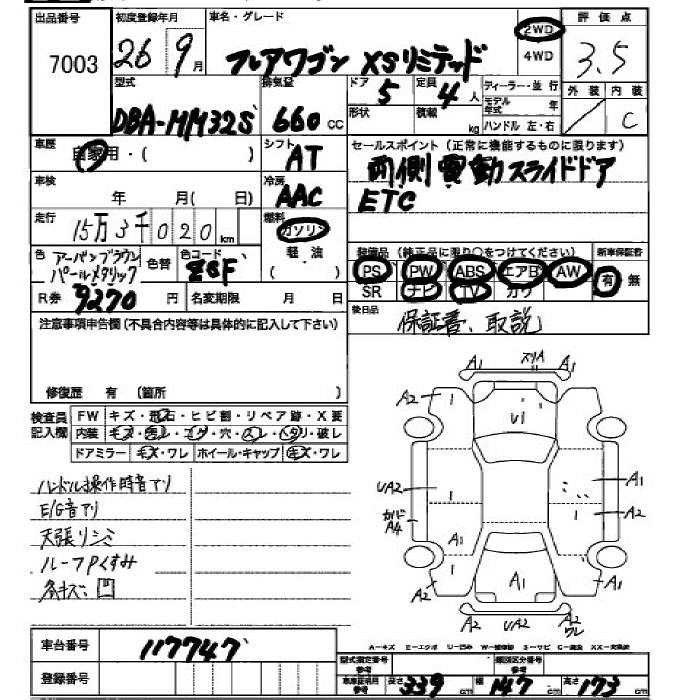 出品番号 初度登録年月 車名・グレード 評価点
7003 26 9月 フレアワゴン XSリミテッド 2WD 4WD 3.5
型式 排気量 ドア 5 定員 4人 ディーラー・並行 外装 内装
DBA-MM32S 660cc 形状 積載 kg モデル年式 年 C
ハンドル 左・右
車歴 自家用・( ) シフト AT セールスポイント(正常に機能するものに限ります)
両側電動スライドドア
車検 年 月( 日) 冷房 AAC ETC
走行 15万3千020km 燃料 ガソリン
軽・油
( )
色 アーバンブラウンパールメタリック 色替 色コード ZCF
装備品(純正品に限り○をつけてください) 新車保証書
PS PW ABS エアB AW 有・無
SR ナビ TV カワ
R券 9270円 名変期限 月 日
後日品 保証書、取説
注意事項申告欄(不具合内容等は具体的に記入して下さい)
修復歴 有 (箇所 )
検査員記入欄 FW キズ・飛石・ヒビ割・リペア跡・X要
内装 キズ・汚レ・コゲ・穴・スレ・ヘタリ・破レ
ドアミラー キズ・ワレ ホイール・キャップ キズ・ワレ
ハンドル操作時音アリ
E/G音アリ
天張リシミ
ルーフPくすみ
各キズ・凹
A1 スリA A1
A2 U1 A2
UA2 A1
ガバA4 A2
A1 A1
A2 A2 UA2 A2 A2ワレ
車台番号 117747
A-キズ E-エクボ U-凹み W-補修跡 S-サビ C-腐食 XX-交換済
登録番号 型式指定番号参考 類別区分番号参考
車庫証明用参考 長さ 339cm 幅 147cm 高さ 173cm